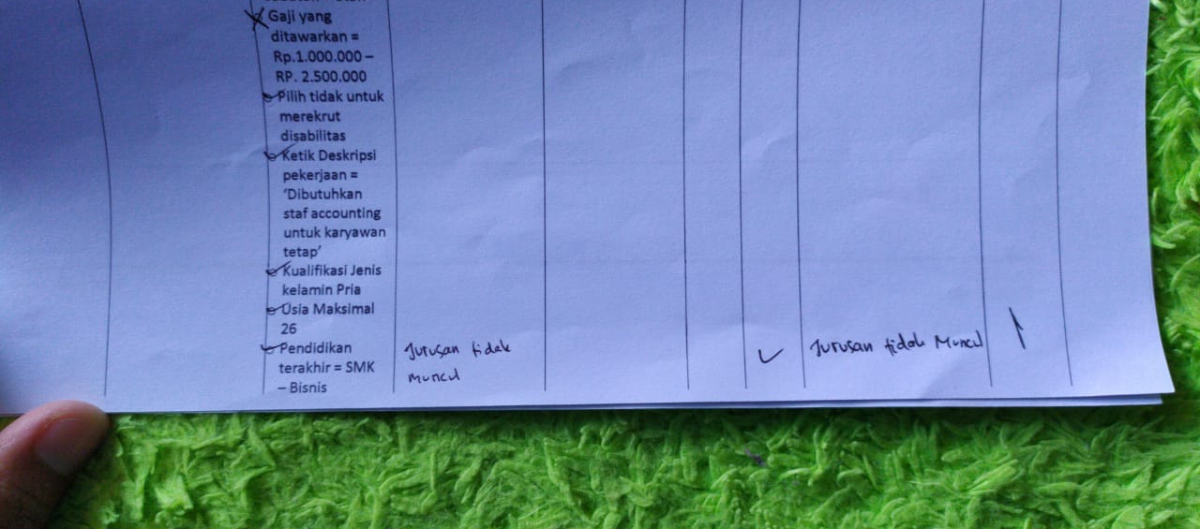 Gaji yang
ditawarkan =
Rp.1.000.000 –
RP. 2.500.000
Pilih tidak untuk
merekrut
disabilitas
Ketik Deskripsi
pekerjaan =
'Dibutuhkan
staf accounting
untuk karyawan
tetap'
Kualifikasi Jenis
kelamin Pria
Usia Maksimal
26
Pendidikan
terakhir = SMK
– Bisnis
Jurusan tidak
muncul
Jurusan tidak Muncul